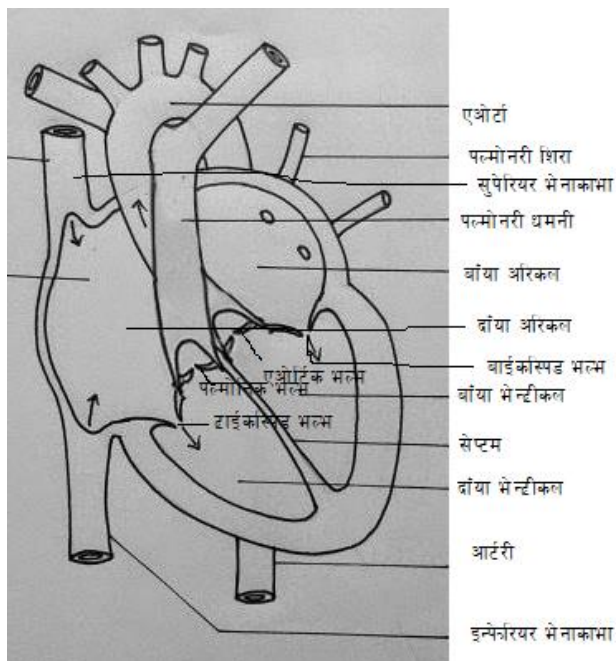 एओर्टा
पल्मोनरी शिरा
सुपेरियर भेनाकाभा
पल्मोनरी धमनी
बांया अरिकल
दांया अरिकल
बाईकस्पिड भल्भ
एओर्टिक भल्भ
पल्मोनिक भल्भ
बांया भेन्टीकल
टाईकस्पिड भल्भ
सेप्टम
दांया भेन्टीकल
आर्टरी
इन्फेरियर भेनाकाभा